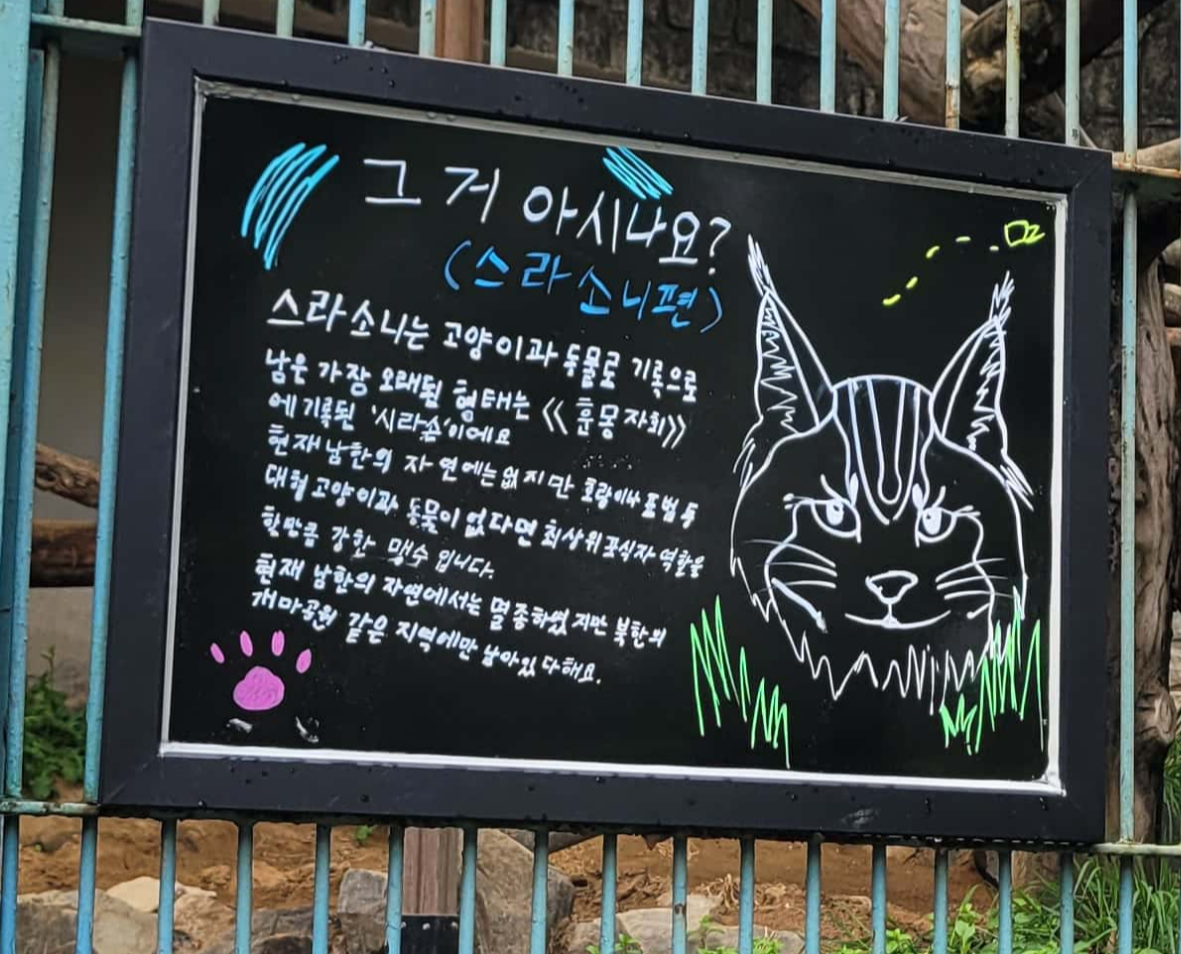 그거 아시나요?
(스라소니편)
스라소니는 고양이과 동물로 기록으로
남은 가장 오래된 형태는 《훈몽자회》
에 기록된 '시라손'이에요
현재 남한의 자연에는 없지만 호랑이나 표범 등
대형 고양이과 동물이 없다면 최상위포식자 역할을
할만큼 강한 맹수 입니다.
현재 남한의 자연에서는 멸종하였지만 북한의
개마공원 같은 지역에만 남아있다해요.